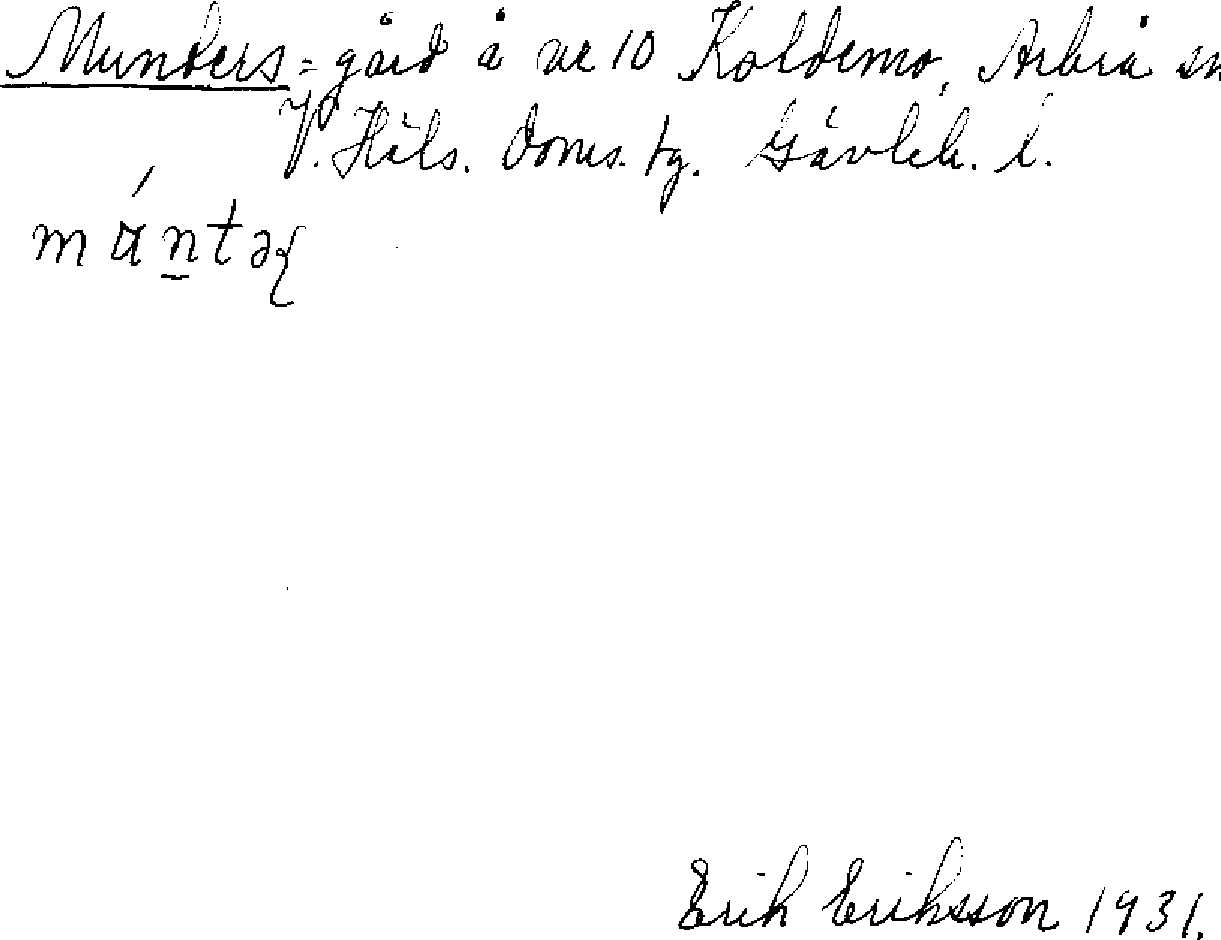 Munders = gård å nr 10 Koldemo, Arbrå sn
V. Häls. doms. tg. Gävleb. l.
Erik Eriksson 1931.